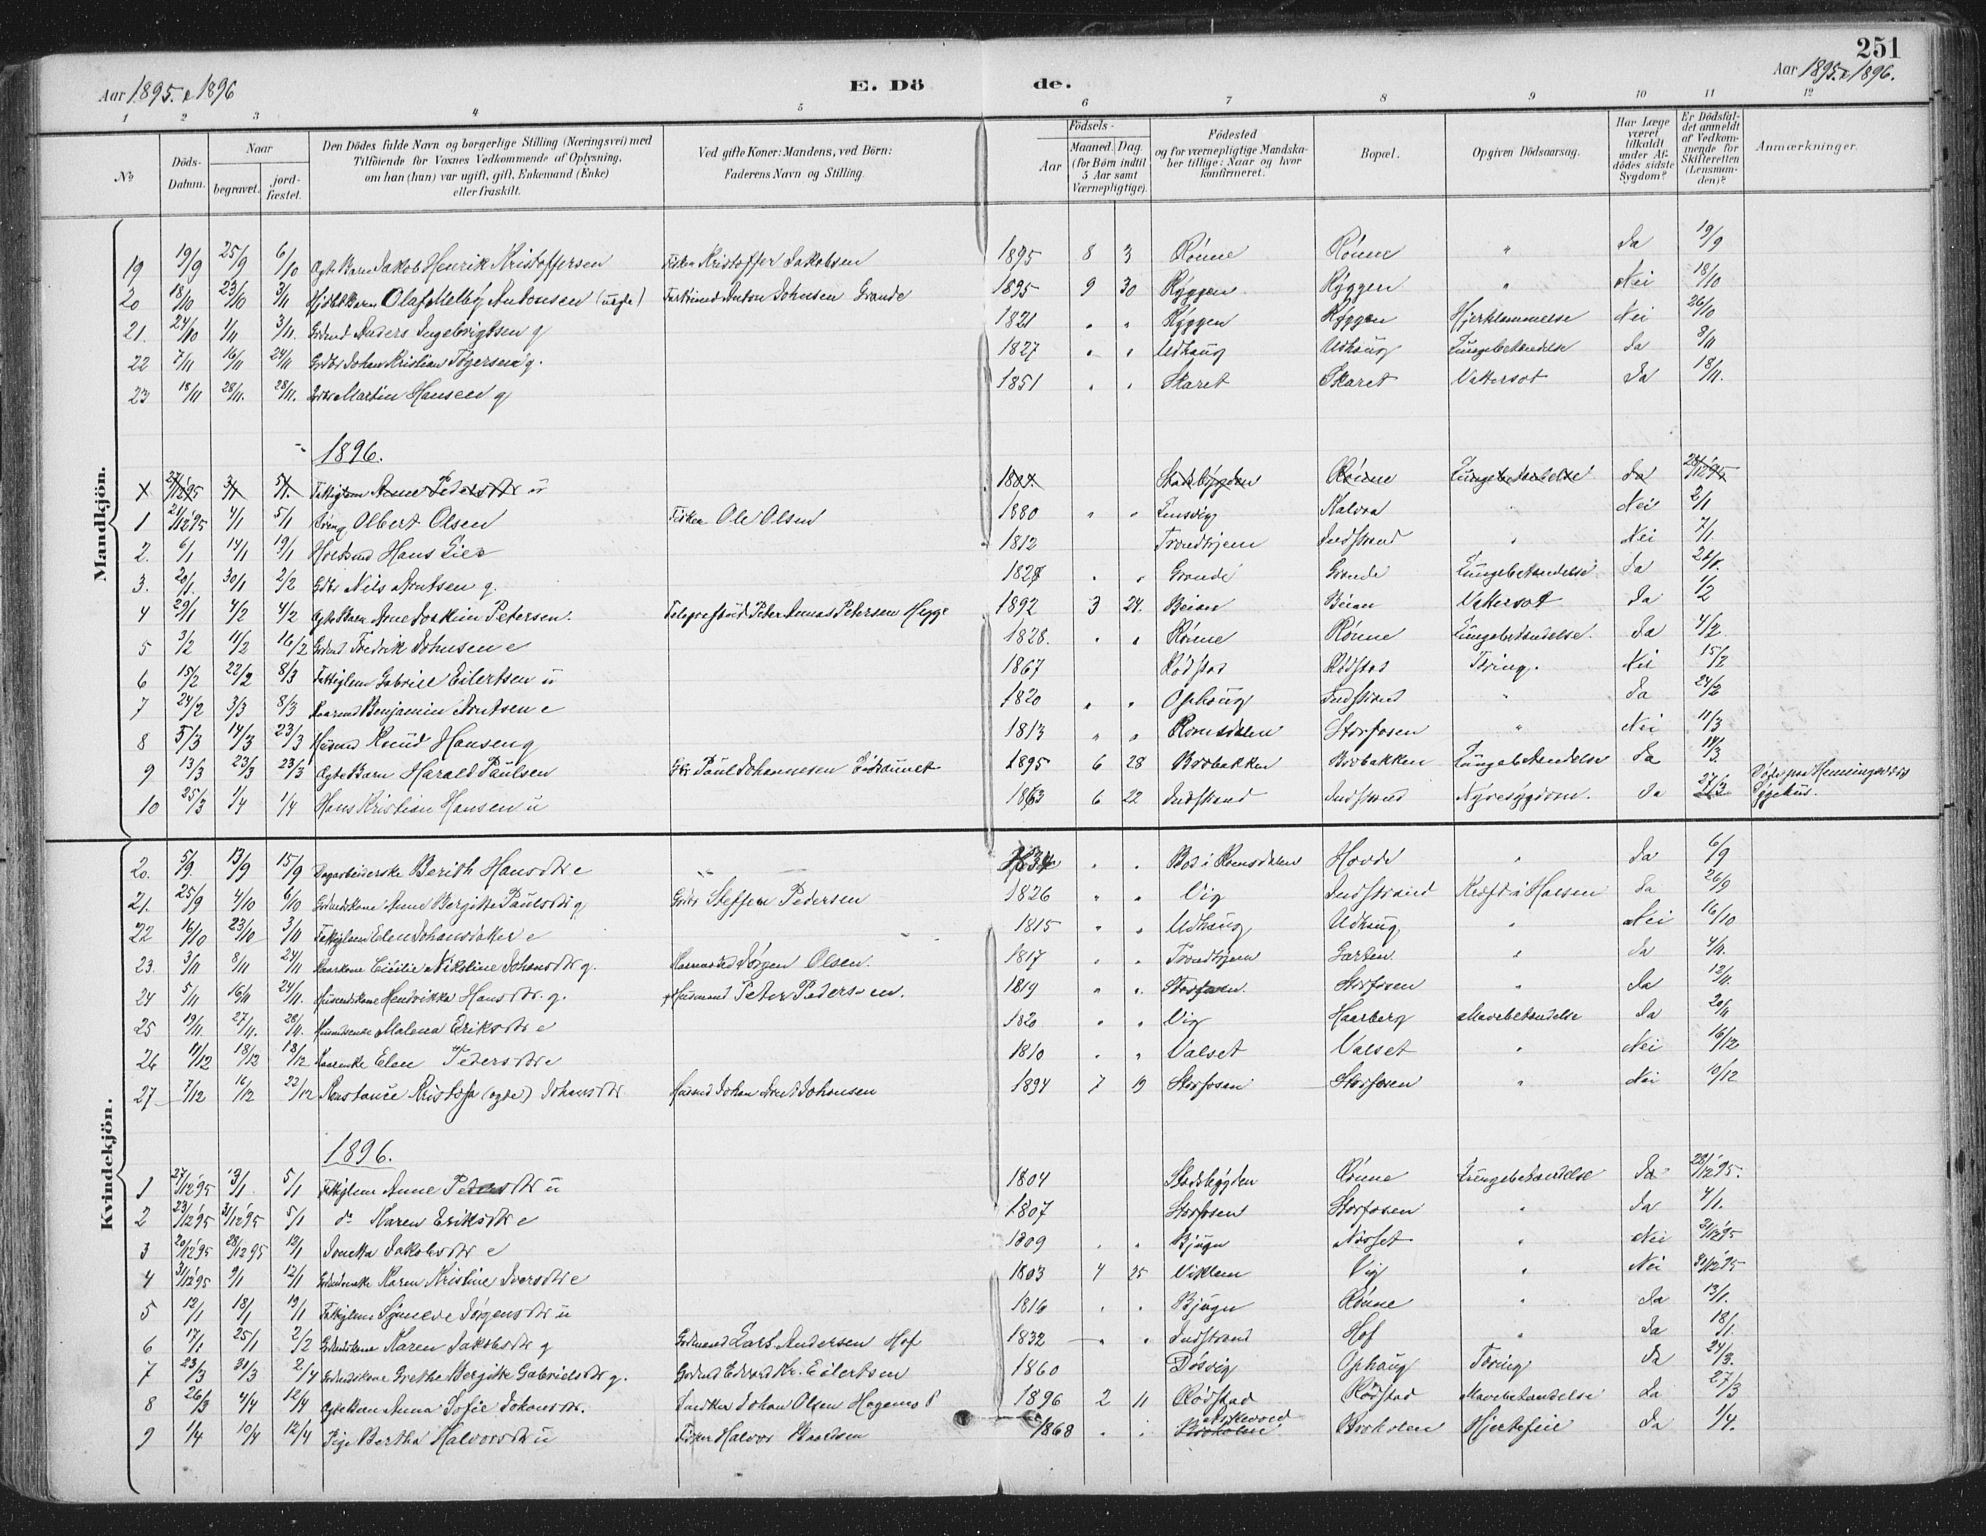 251
Aar 1895 & 1896
E. Dö
de.
Aar 1895 & 1896.
1 2 3 4 5 6 7 8 9 10 11 12
No
Döds-Datum.
Naar
begravet.
jord-fæstet.
Den Dödes fulde Navn og borgerlige Stilling (Næringsvei) med
Tilföiende for Voxnes Vedkommende af Oplysning,
om han (hun) var ugift, gift, Enkemand (Enke)
eller fraskilt.
Ved gifte Koner: Mandens, ved Börn:
Faderens Navn og Stilling.
Födsels-
Aar
Maaned. Dag.
(for Börn indtil
5 Aar samt
Værnepligtige).
Födested
og for værnepligtige Mandska-
ber tillige: Naar og hvor
konfirmeret.
Bopæl.
Opgiven Dödsaarsag.
Har Læge
været
tilkaldt
under Af-
dödes sidste
Sygdom?
Er Dödsfal-
det anmeldt
af Vedkom-
mende for
Skifteretten
(Lensman-
den)?
Anmærkninger.
Mandkjön.
19 19/9 25/9 6/10 Ægte Barn Jakob Henrik Kristoffersen Fisker Kristoffer Jakobsen 1895 8 3 Rönne Rönne " Ja 19/9
20 18/10 23/10 3/11 Olaf Melby Antonsen (uegte) Anton Johnsen Grande 1895 9 30 Ryggen Ryggen " Nei 18/10
21. 24/10 1/11 3/11. Anders Ingebrigtsen g 1821 " " Ryggen Ryggen Hjertelammelse Nei 26/10
22 7/11 16/11 24/11 Johan Kristian g. 1827 " " Udhaug Udhaug Lungebetændelse Ja 8/11
23 18/11 28/11. 28/11. Martin Hansen g 1851 " " Skaret Skaret Vattersot Ja 18/11.
1896.
X 27/12 95 3/1 5/1. Fattiglem Anne Pedersdtr u Stadsbygden Rönne Lungebetændelse Ja 28/12 95
1 21/12 95 4/1 5/1 Albert Olsen Fisker Ole Olsen 1880 " " Lensvig Kalvaa " Nei 2/1
2. 6/1 14/1 19/1 Hans Lier 1812 Trondhjem Indstrand " Nei 7/1.
3. 20/1. 30/1 2/2 Nils Arntsen g. " " Grande Grande Lungebetændelse Ja
4 29/1 4/2 4/2 Ægte Barn Arne Joakim Petersen. Peter Petersen 1892 3 24. Beian Beian Vattersot Ja 1/2
5 3/2 11/2 16/2 Fredrik Johnsen e 1828. " " Rönne Rönne Lungebetændelse. Ja 4/2.
6 15/2 22/2 8/3 Fattiglem Gabriel Eilertsen u 1867 Rödstad Rödstad Tæring. Nei 15/2
7 24/2 3/3 8/3 Benjamin Arntsen e 1820 " " Ophaug Indstrand " Ja 24/2
8 5/3 14/3 23/3 Knud Hansen g 1813 " " Romsdalen Storfosen " Nei 11/3
9 13/3 23/3 23/3 Ægte Barn Harald Paulsen Paul Johannesen 1895 6 28 Borbakken Borbakken Lungebetændelse Ja 14/3.
10 25/3 1/4 1/4 Hans Kristian Hansen u 1863 6 22 Indstrand Indstrand Nyresygdom. Ja 27/3 Sygehus.
Kvindekjön.
20. 5/9. 13/9 15/9 Berith Hansdtr e " " Romsdalen Hovde " Ja 6/9
21. 25/9 4/10 6/10 Anne Bergitte Paulsdtr g Steffen Pedersen 1826 " " Vig Indstrand Kræft i Halsen Ja 26/9
22 16/10 23/10 3/11 Fattiglem Elen Johansdatter e 1815 " " Udhaug Udhaug " Nei 16/10
23. 3/11 8/11 24/11 Nikoline Johansdtr g. Jörgen Olsen. 1817 " " Trondhjem Garten " Ja 4/11.
24 5/11 16/11 24/11. Hendrikke Hansdtr. g. Husmand Peter Pedersen. 1819 " " Storfosen. Storfosen " Ja 12/11.
25 19/11 27/11. 28/11. Malena Eriksdtr e 1820 " " Vig Haarberg Mavebetændelse Ja 20/11
26 11/12 18/12 18/12 Elen Pedersdtr e 1810 " " Valset Valset " Nei 16/12
27 7/12 16/12 22/12 Konstance Kristofa (egte) Johansdtr Johan Arnt Johansen 1894 7 19 Storfosen Storfosen " Nei 10/12
1896.
1 27/12 95 3/1. 5/1 Fattiglem Anne Pedersdtr u 1804 Stadsbygden Rönne Lungebetændelse Ja 28/12 95.
2 23/12 95 31/12 95 5/1 do Karen Eriksdtr e 1807 Storfosen Storfosen " Ja 4/1.
3 20/12 95 28/12 95 12/1 Jakobsdtr e 1809 " " Bjugn " Nei 21/12 95
4 31/12 95 9/1 12/1 Karen Kristine Iversdtr e 1803 4 25 Viklem Vig " Nei 31/12 95
5 12/1 18/1 19/1 Fattiglem Jörgensdtr u 1816 " " Bjugn Rönne " Ja 13/1.
6 17/1 25/1 2/2 Karen Jakobsdtr g Lars Andersen Hof 1832 " " Indstrand Hof " Ja 18/1.
7 23/3 30/3 2/4 Grethe Bergitte Gabrielsdtr g. Edvard Kr. Eilertsen 1860 Dösvig Ophaug Tæring Ja 24/3.
8 26/3 4/4 12/4 Ægte Barn Anna Sofie Johansdtr. Johan Olsen 1896 2 11 Rödstad Rödstad Mavebetændelse Ja 27/3
9 1/4 10/4 12/4 Pige Bertha Halvorsdtr u Fisker Halvor Baardsen 1868 " " Borkolen Hjertefeil Ja 1/4.